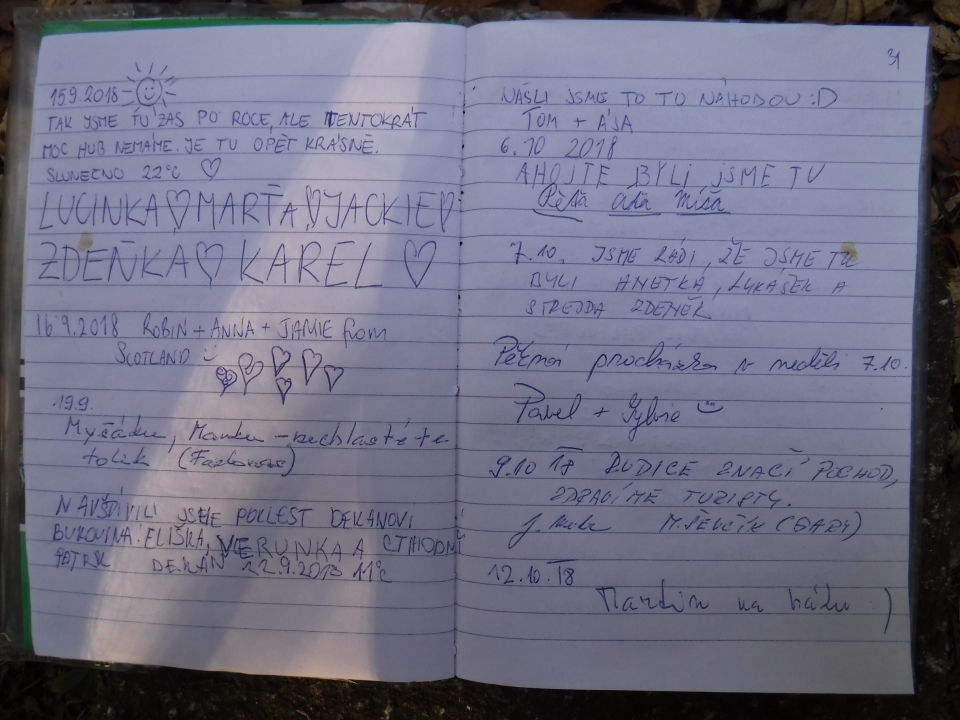 15.9.2018
TAK JSME TU ZAS PO ROCE, ALE TENTOKRÁT
MOC HUB NEMÁME. JE TU OPĚT KRÁSNĚ.
SLUNEČNO 22°C ♡
LUCINKA ♡ MARŤA ♡ JACKIE ♡
ZDEŇKA ♡ KAREL ♡
16.9.2018 ROBIN + ANNA + JAMIE from
SCOTLAND
19.9.
NAVŠTÍVILI JSME POKLEST DEKANOVI
BUKOVINA: ELIŠKA, VERUNKA A CTIHODNÝ
DEKAN 22.9.2018 11°C
31
NAŠLI JSME TO TU NÁHODOU :D
TOM + ÁJA
6.10 2018
AHOJTE BYLI JSME TU
Péťa Áďa Míša
7.10. JSME RÁDI, ŽE JSME TU
BYLI ANETKA, LUKÁŠEK A
STREJDA ZDENĚK
Pěkná procházka v neděli 7.10.
Pavel + Sylvie
9.10 18 RUDICE ZNAČÍ POCHOD,
ZDRAVÍME TURISTY.
M. ŠEVČÍK (GARY)
12.10.18
Martin na